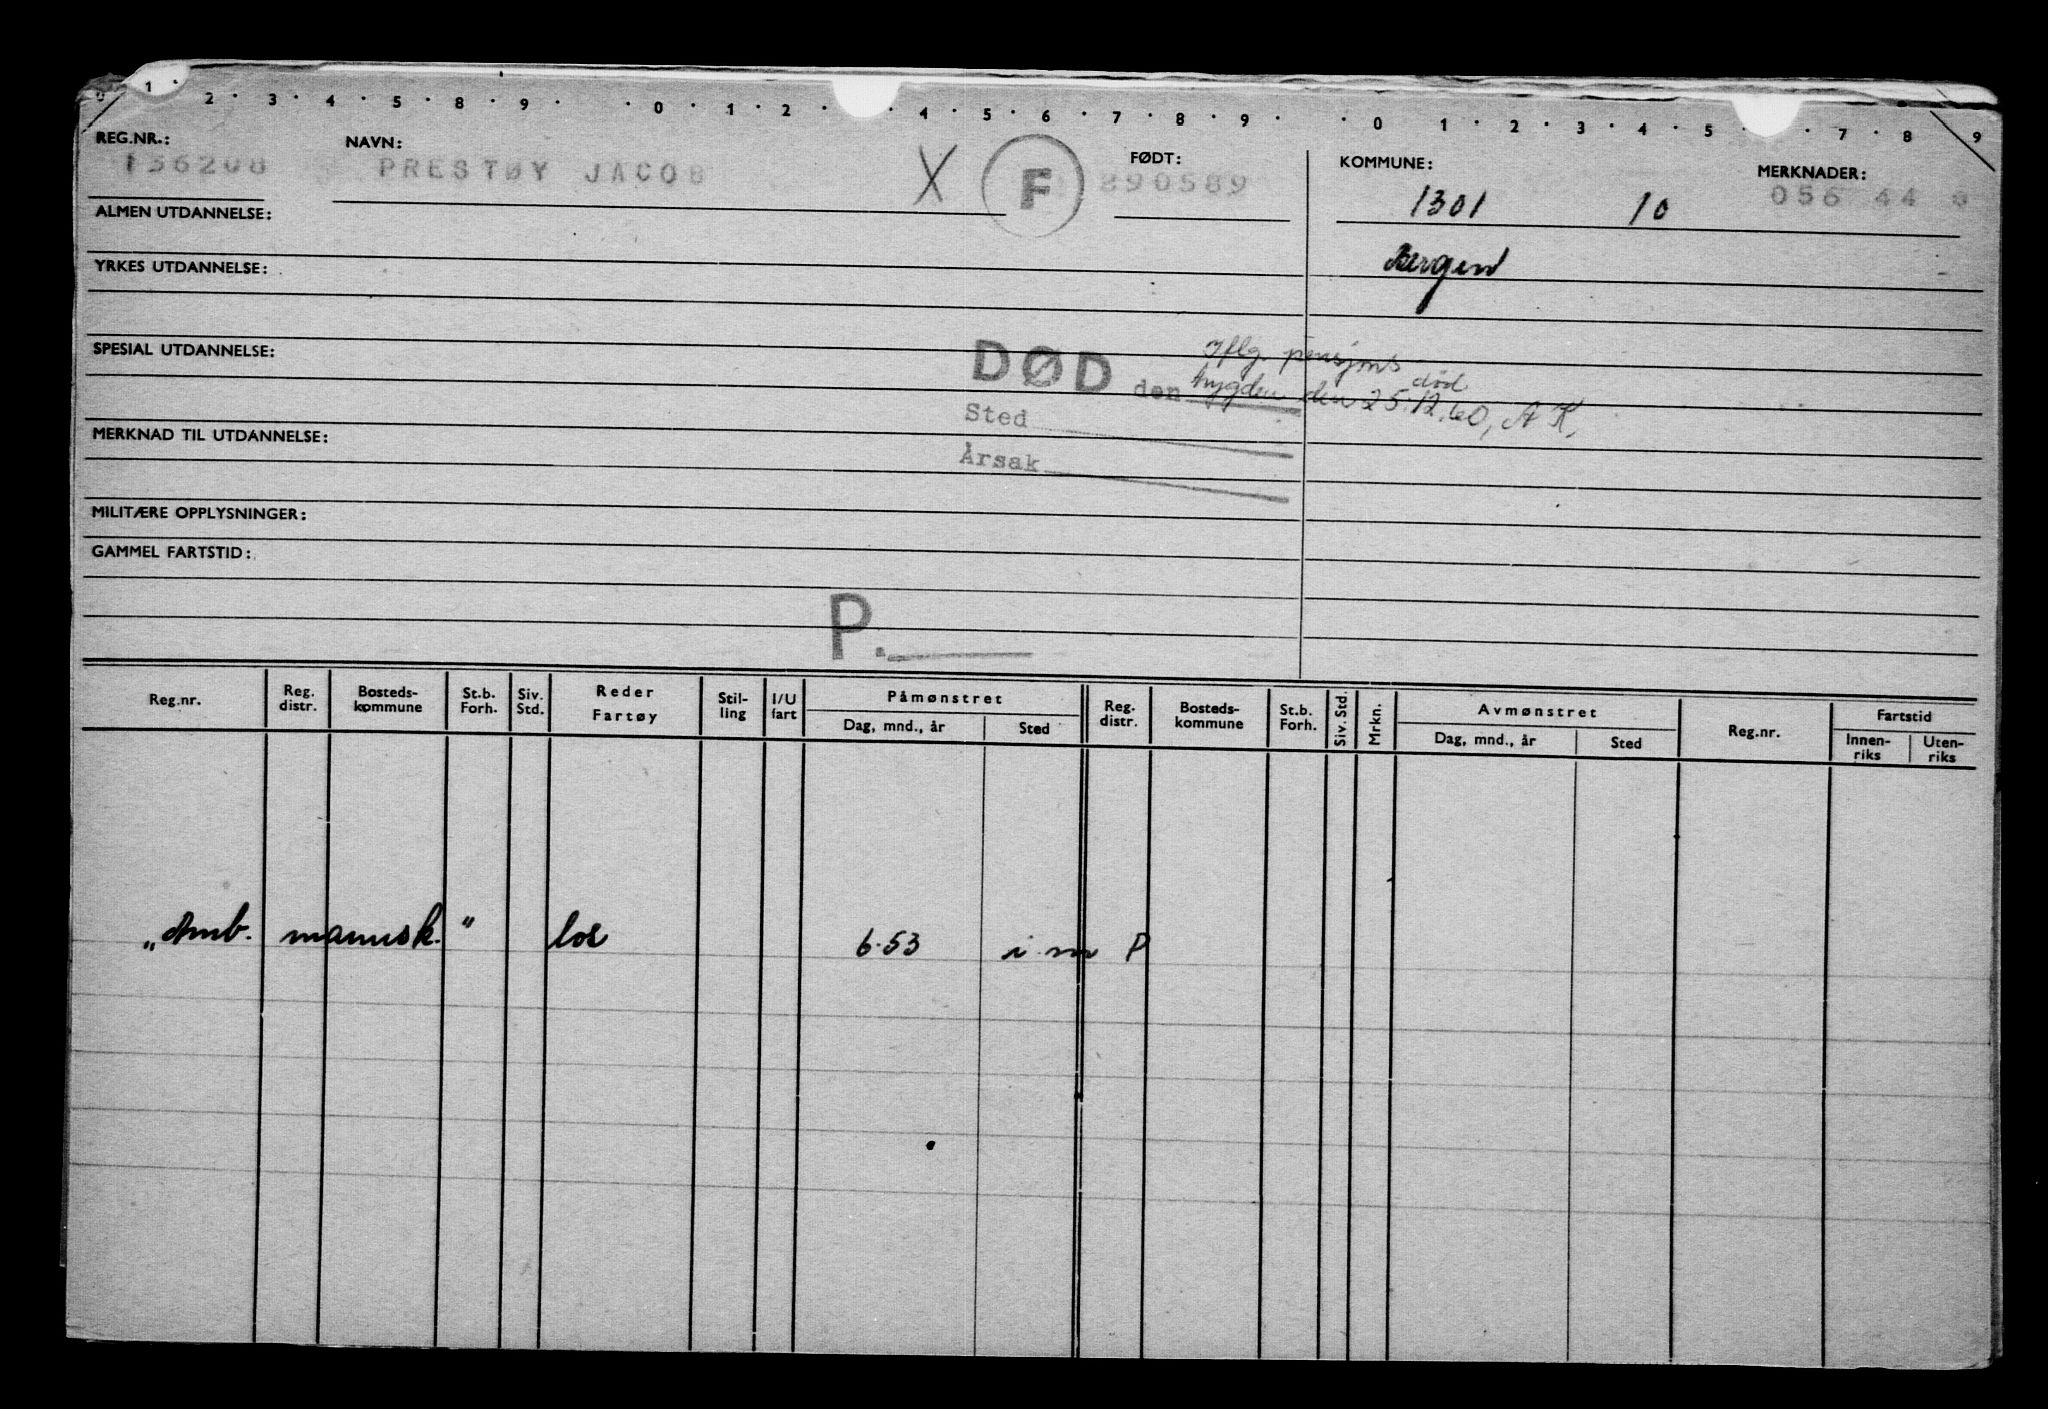 1 · 2 · 3 · 4 · 5 · 8 · 9 · · 0 · 1 · 2 · · 4 · 5 · 6 · 7 · 8 · 9 · · 0 · 1 · 2 · 3 · 4 · 5 · · 7 · 8 · 9
REG.NR.: NAVN: FØDT: KOMMUNE: MERKNADER:
136208 PRESTØY JACOB X F 890589 1301 10 056 44
ALMEN UTDANNELSE:
Bergen
YRKES UTDANNELSE:
SPESIAL UTDANNELSE:
DØD den Iflg. pensjons
trygden død den 25.12.60, A K,
Sted
Årsak
MERKNAD TIL UTDANNELSE:
MILITÆRE OPPLYSNINGER:
GAMMEL FARTSTID:
P.
Reg.nr. Reg. distr. Bosteds-kommune St.b. Forh. Siv. Std. Reder Fartøy Stil-ling I/U fart Påmønstret Dag, mnd., år Sted Reg. distr. Bosteds-kommune St.b. Forh. Siv. Std. Mrkn. Avmønstret Dag, mnd., år Sted Reg.nr. Fartstid Innen-riks Uten-riks
„Amb. mannsk." los 6-53 i m P